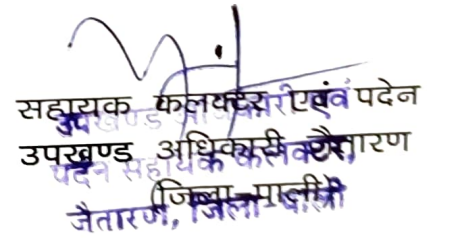 सहायक कलक्टर एवं पदेन
उपखण्ड अधिकारी जैतारण
(जिला-पाली)
उपखण्ड अधिकारी एवं
पदेन सहायक कलक्टर,
जैतारण, जिला-पाली